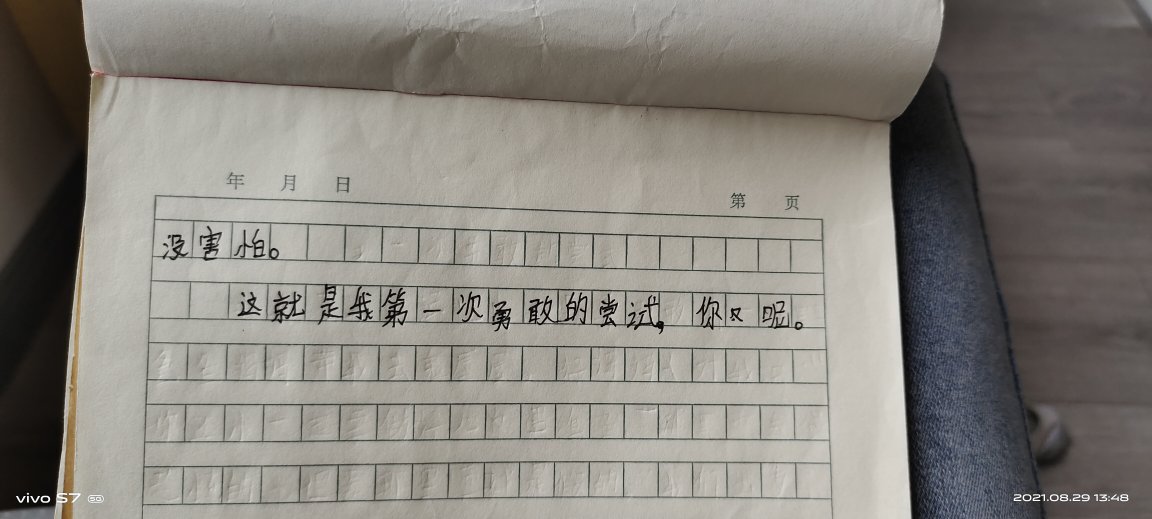 年 月 日
第 页
没害怕。
这就是我第一次勇敢的尝试，你呢。
vivo S7 5G
2021.08.29 13:48